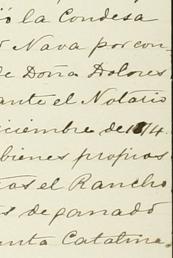 ió la Condesa
Nava por con-
de Doña Dolores
ante el Notario
iciembre de
bienes propios
as el Rancho
s de ganado
nta Catalina